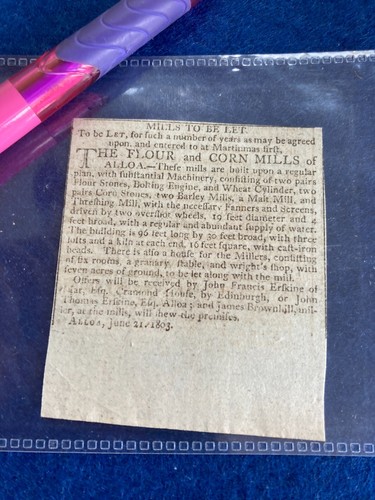 MILLS TO BE LET.
To be LET, for ſuch a number of years as may be agreed
upon, and entered to at Martinmas firſt,
THE FLOUR and CORN MILLS of
ALLOA.—Theſe mills are built upon a regular
plan, with ſubſtantial Machinery, conſiſting of two pairs
Flour Stones, Bolting Engine, and Wheat Cylinder, two
pairs Corn Stones, two Barley Mills, a Malt Mill, and
Threſhing Mill, with the neceſſary Fanners and Screens,
driven by two overſhot wheels, 19 feet diameter and 4
feet broad, with a regular and abundant ſupply of water.
The building is 96 feet long by 30 feet broad, with three
lofts and a kiln at each end, 16 feet ſquare, with caſt-iron
heads. There is alſo a houſe for the Millers, conſiſting
of ſix rooms, a granary, ſtable, and wright's ſhop, with
ſeven acres of ground, to be let along with the mill.
Offers will be received by John Francis Erſkine of
Mar, Eſq. Cramond Houſe, by Edinburgh, or John
Thomas Erſkine, Eſq. Alloa; and James Brownhill, mil-
ler, at the mills, will ſhew the premiſes.
ALLOA, June 21. 1803.